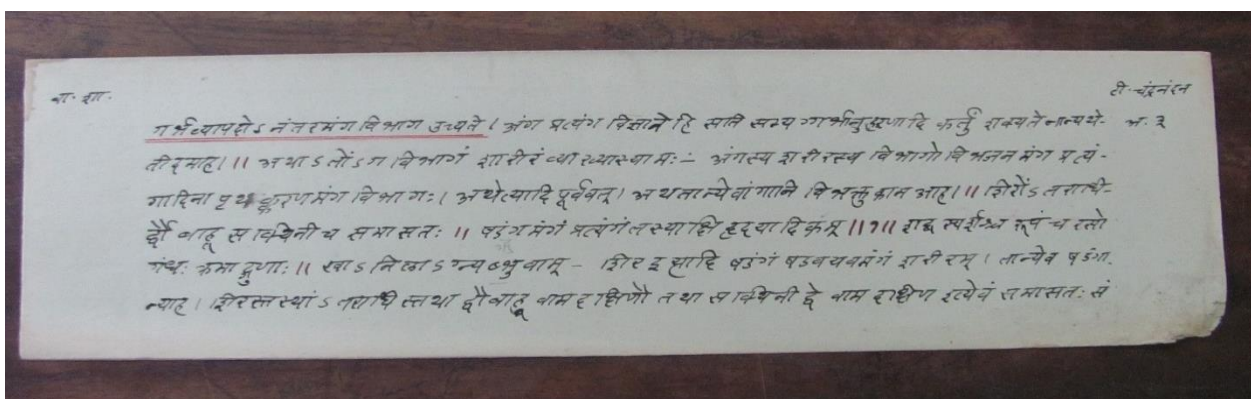 वा. शा.
टी. चंद्रनंदन
गर्भव्यापदोऽनंतरमंगविभाग उच्यते । अंग प्रत्यंग विज्ञाने हि सति सम्य ग्गर्भानुसरणादि कर्तुं शक्यते नान्यथे-
अ. ३
तीदमाह। ।। अथाऽतोंऽग विभागं शारीरं व्याख्यास्यामः ∸ अंगस्य शरीरस्य विभागो विभजनमंग प्रत्यं-
गादिना पृथक्करणमंग विभागः । अथेत्यादि पूर्ववत्। अथतान्येवांगानि विभक्तुकाम आह। ।। शिरोंऽतराधी-
र्द्वौ बाहू सक्थिनी च समासतः ।। षडंगमंगं प्रत्यंगं तस्याक्षि हृदयादिकम् ।।१।। शब्द स्पर्शश्च रूपं च रसो
गंधः क्रमाद्गुणाः ।। खाऽनिलाऽग्न्यब्भुवाम् - शिर इत्यादि षडंगं षडवयवमंगं शरीरम् । तान्येव षडंगा.
न्याह । शिरस्तस्यांऽतराधि स्तथा द्वौ बाहू वाम दक्षिणौ तथा सक्थिनी द्वे वाम दक्षिण इत्येवं समासतः सं